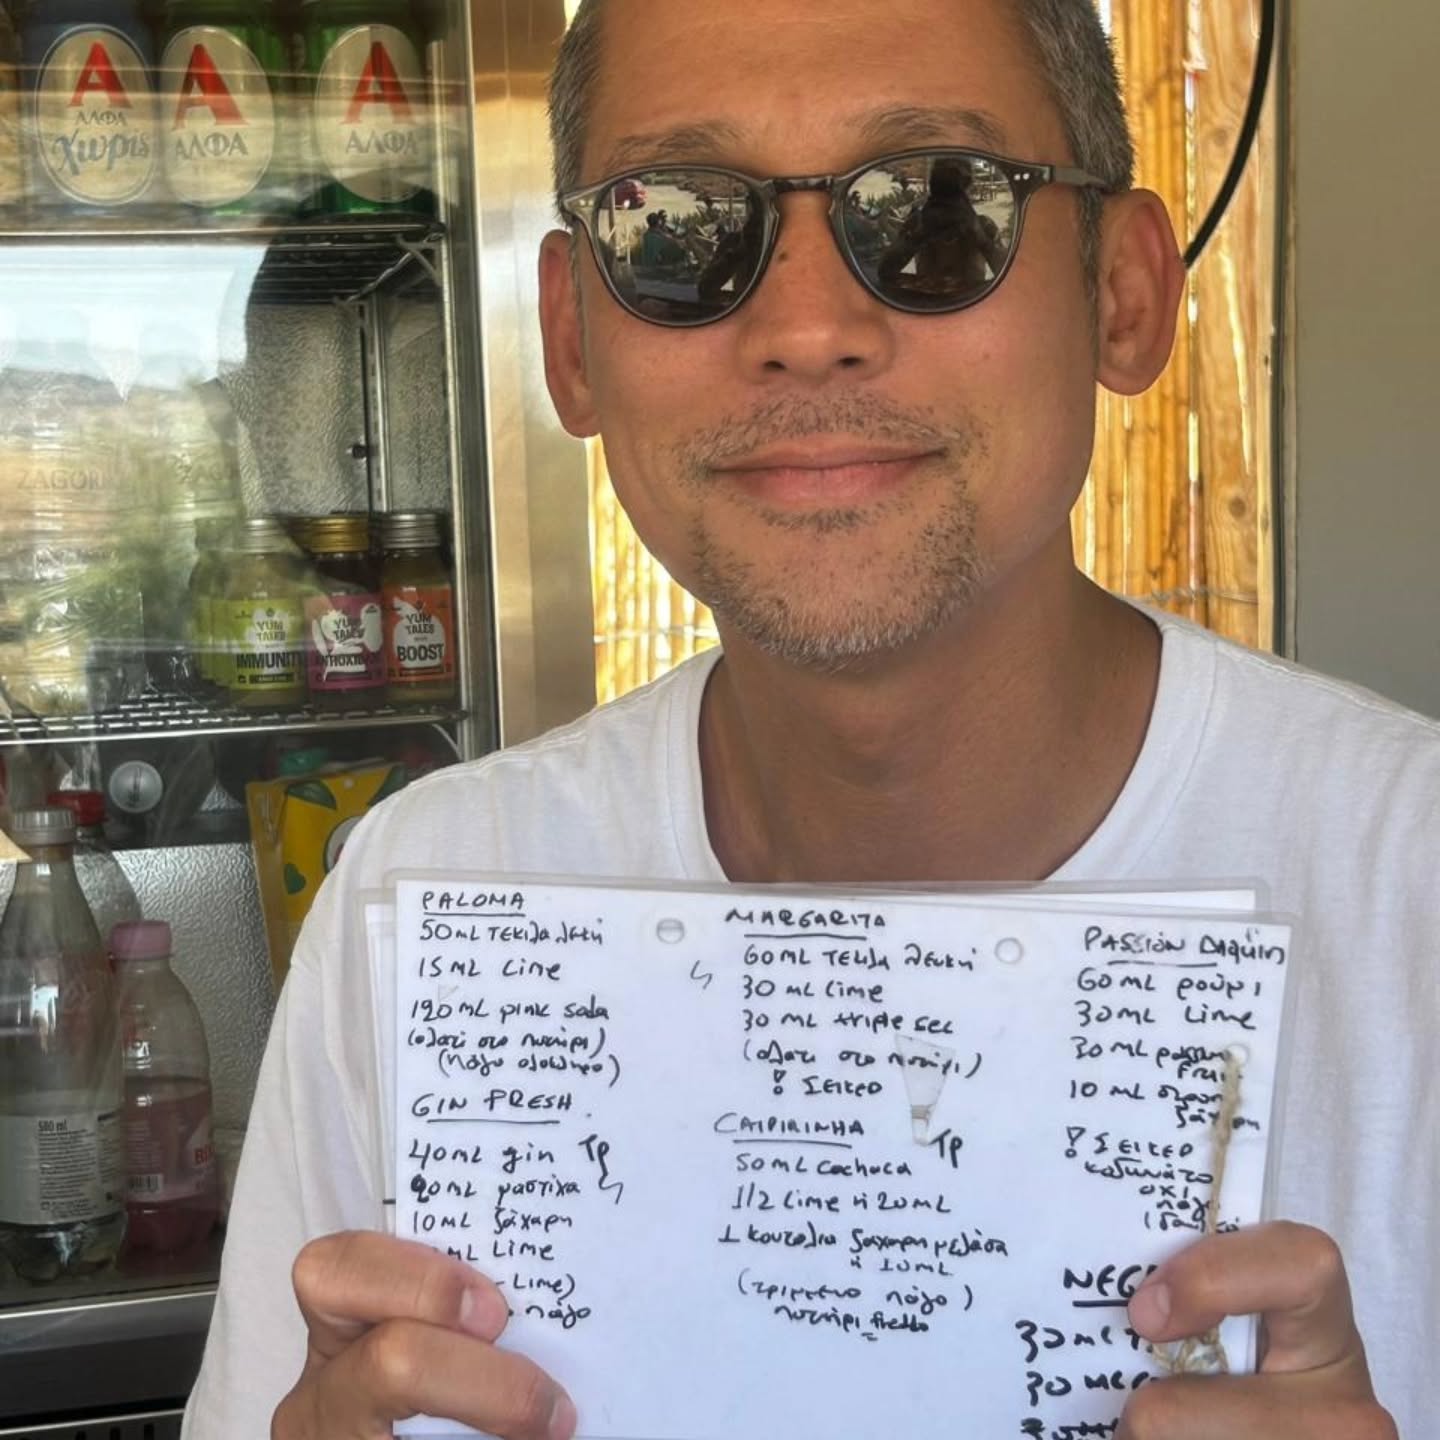 ΑΛΦΑ
Χωρίς
ΑΛΦΑ
ΑΛΦΑ
ZAGORI
YUM
TALES
IMMUNIT
YUM
TALES
YUM
TALES
BOOST
500 ml
PALOMA
50 mL τεκιλα λευκή
15 mL Lime
120 mL pink soda
(αλατι στο ποτήρι)
(πάγο ολόκληρο)
GIN FRESH
40 mL gin
20 mL μαστιχα
10 mL ζάχαρη
mL Lime
Lime)
πάγο
MARGARITA
60 mL τεκιλα λευκή
30 mL Lime
30 mL triple sec
(αλατι στο ποτήρι)
! ΣΕΙΚΕΡ
CAIPIRINHA
50 mL cachaca
1/2 Lime ή 20 mL
1 κουταλιά ζαχαρη μελάσα
ή 10 mL
(τριμμενο πάγο)
ποτήρι freddo
PASSION DAIQUIRI
60 mL ρούμι
30 mL Lime
30 mL passion
Frui
10 mL
ζάχαρη
! ΣΕΙΚΕΡ
κολωνάτο
οχι
πάγο
NEG
30 mL
30 mL